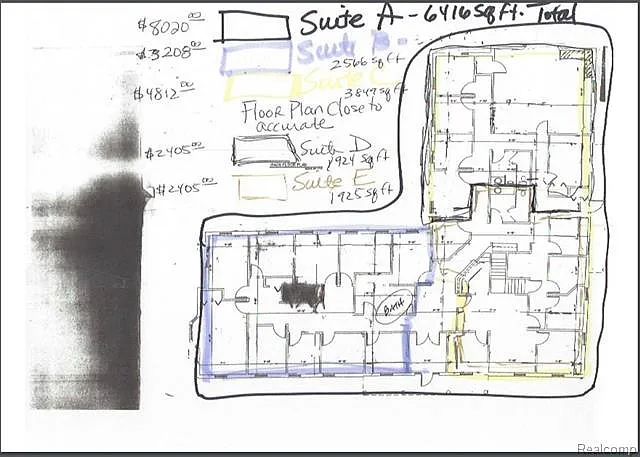 $8020⁰⁰ Suite A - 6416 Sq Ft. Total
$3208⁰⁰ Suite B -
2566 sq ft
$4812⁰⁰ Suite C
3849 sq ft
Floor Plan Close to
accurate
$2405⁰⁰ Suite D
1924 sq ft
$2405⁰⁰ Suite E
1925 sq ft
BATH
Realcomp